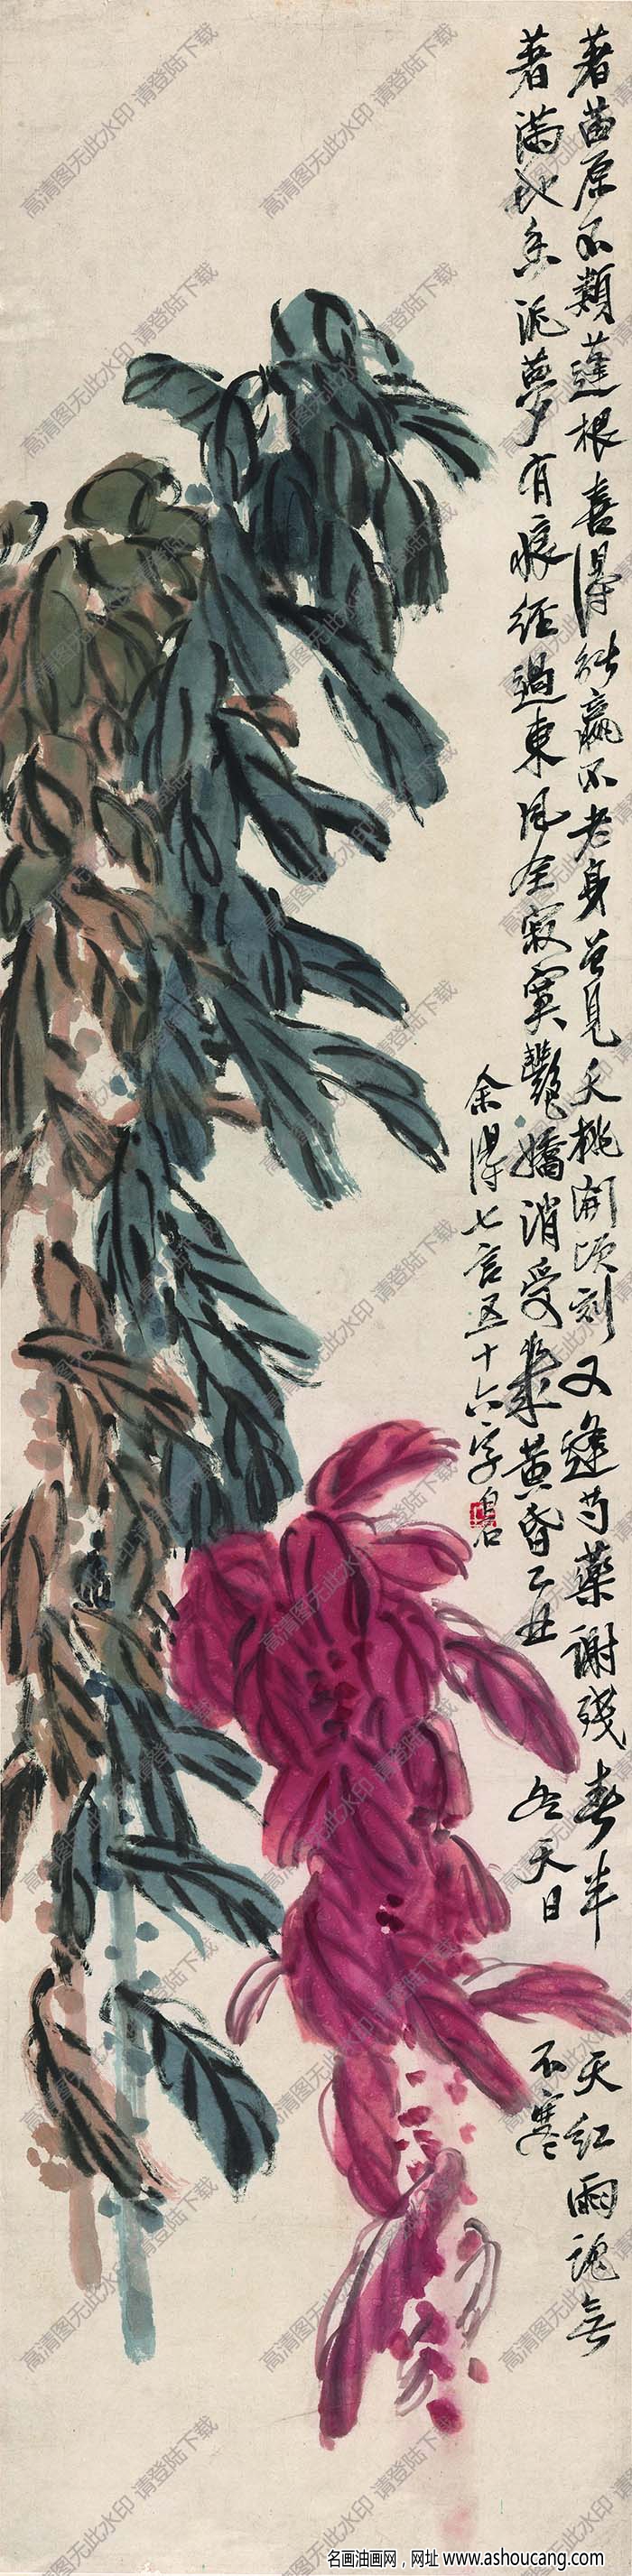 著苗原不類蓬根喜得能贏不老身曾見夭桃開頃刻又逢芍藥謝殘春半天紅雨魂無
著滿地香泥夢有痕經過東風全寂寞豔嬌消受幾黃昏乙丑冬天日不寒
余得七言五十六字白石
高清图无此水印 请登陆下载
名画油画网，网址 www.ashoucang.com